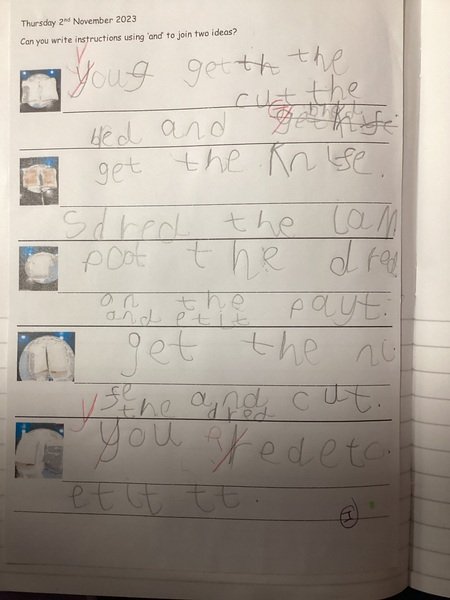 Thursday 2nd November 2023
Can you write instructions using 'and' to join two ideas?
y
youg get th the
cut the
bred and get knife
get the Knise.
Sdred the jam
poot the dred
on the payt.
and etit
get the ni
fe and cut.
the dred
y
you redeto
etit tt.